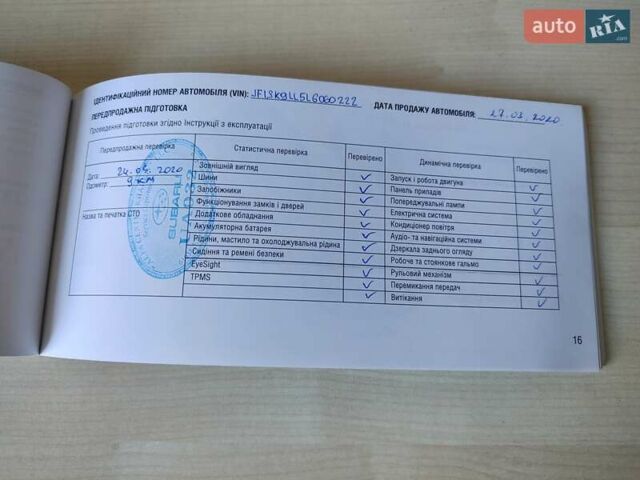 auto RIA.com
ІДЕНТИФІКАЦІЙНИЙ НОМЕР АВТОМОБІЛЯ (VIN): JF1SK9LL5LG060222 ДАТА ПРОДАЖУ АВТОМОБІЛЯ: 27.03.2020
ПЕРЕДПРОДАЖНА ПІДГОТОВКА
Проведення підготовки згідно Інструкції з експлуатації
Передпродажна перевірка Статистична перевірка Перевірено Динамічна перевірка Перевірено
Дата: 24.03.2020
Одометр: 9 км
Назва та печатка СТО
SUBARU
UA033
Зовнішній вигляд
Шини
Запобіжники
Функціонування замків і дверей
Додаткове обладнання
Акумуляторна батарея
Рідини, мастило та охолоджувальна рідина
Сидіння та ремені безпеки
EyeSight
TPMS
Запуск і робота двигуна
Панель приладів
Попереджувальні лампи
Електрична система
Кондиціонер повітря
Аудіо- та навігаційні системи
Дзеркала заднього огляду
Робоче та стоянкове гальмо
Рульовий механізм
Перемикання передач
Витікання
16